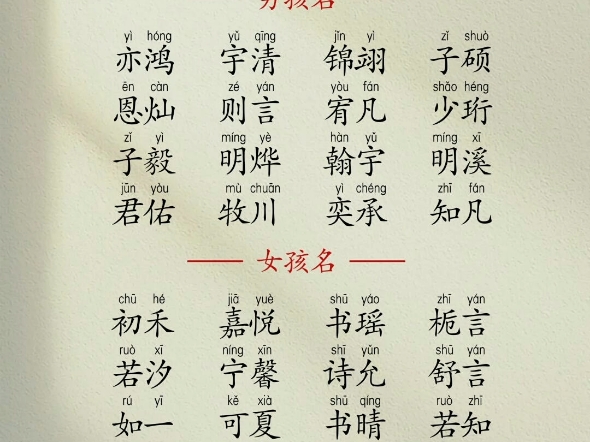 男孩名
yì hóng yǔ qīng jǐn yì zǐ shuò
亦鸿 宇清 锦翊 子硕
ēn càn zé yán yòu fán shǎo héng
恩灿 则言 宥凡 少珩
zǐ yì míng yè hàn yǔ míng xī
子毅 明烨 翰宇 明溪
jūn yòu mù chuān yì chéng zhī fán
君佑 牧川 奕承 知凡
女孩名
chū hé jiā yuè shū yáo zhī yán
初禾 嘉悦 书瑶 栀言
ruò xī níng xīn shī yǔn shū yán
若汐 宁馨 诗允 舒言
rú yī kě xià shū qíng ruò zhī
如一 可夏 书晴 若知